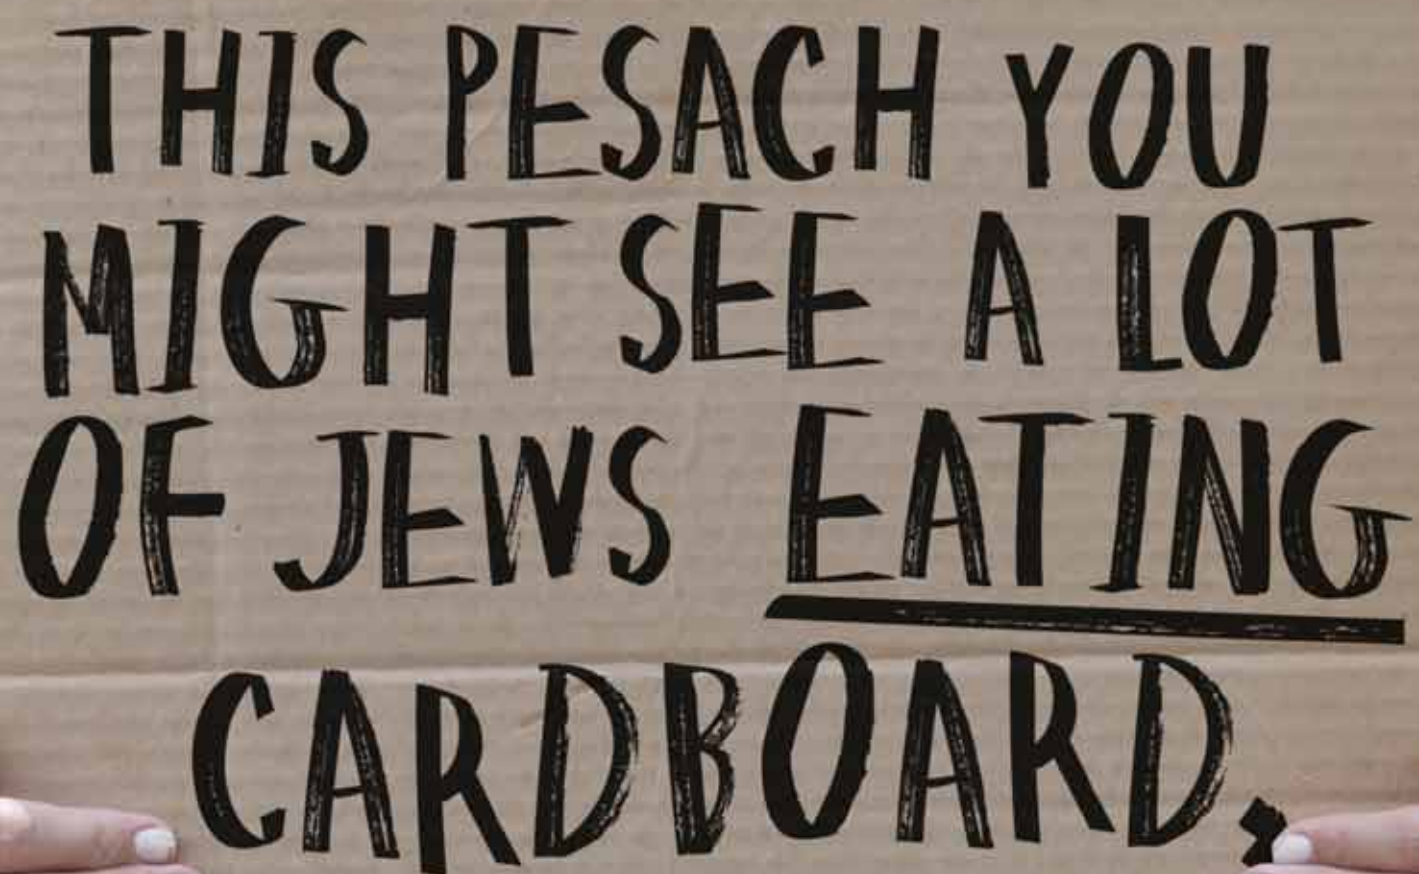 THIS PESACH YOU
MIGHT SEE A LOT
OF JEWS EATING
CARDBOARD.